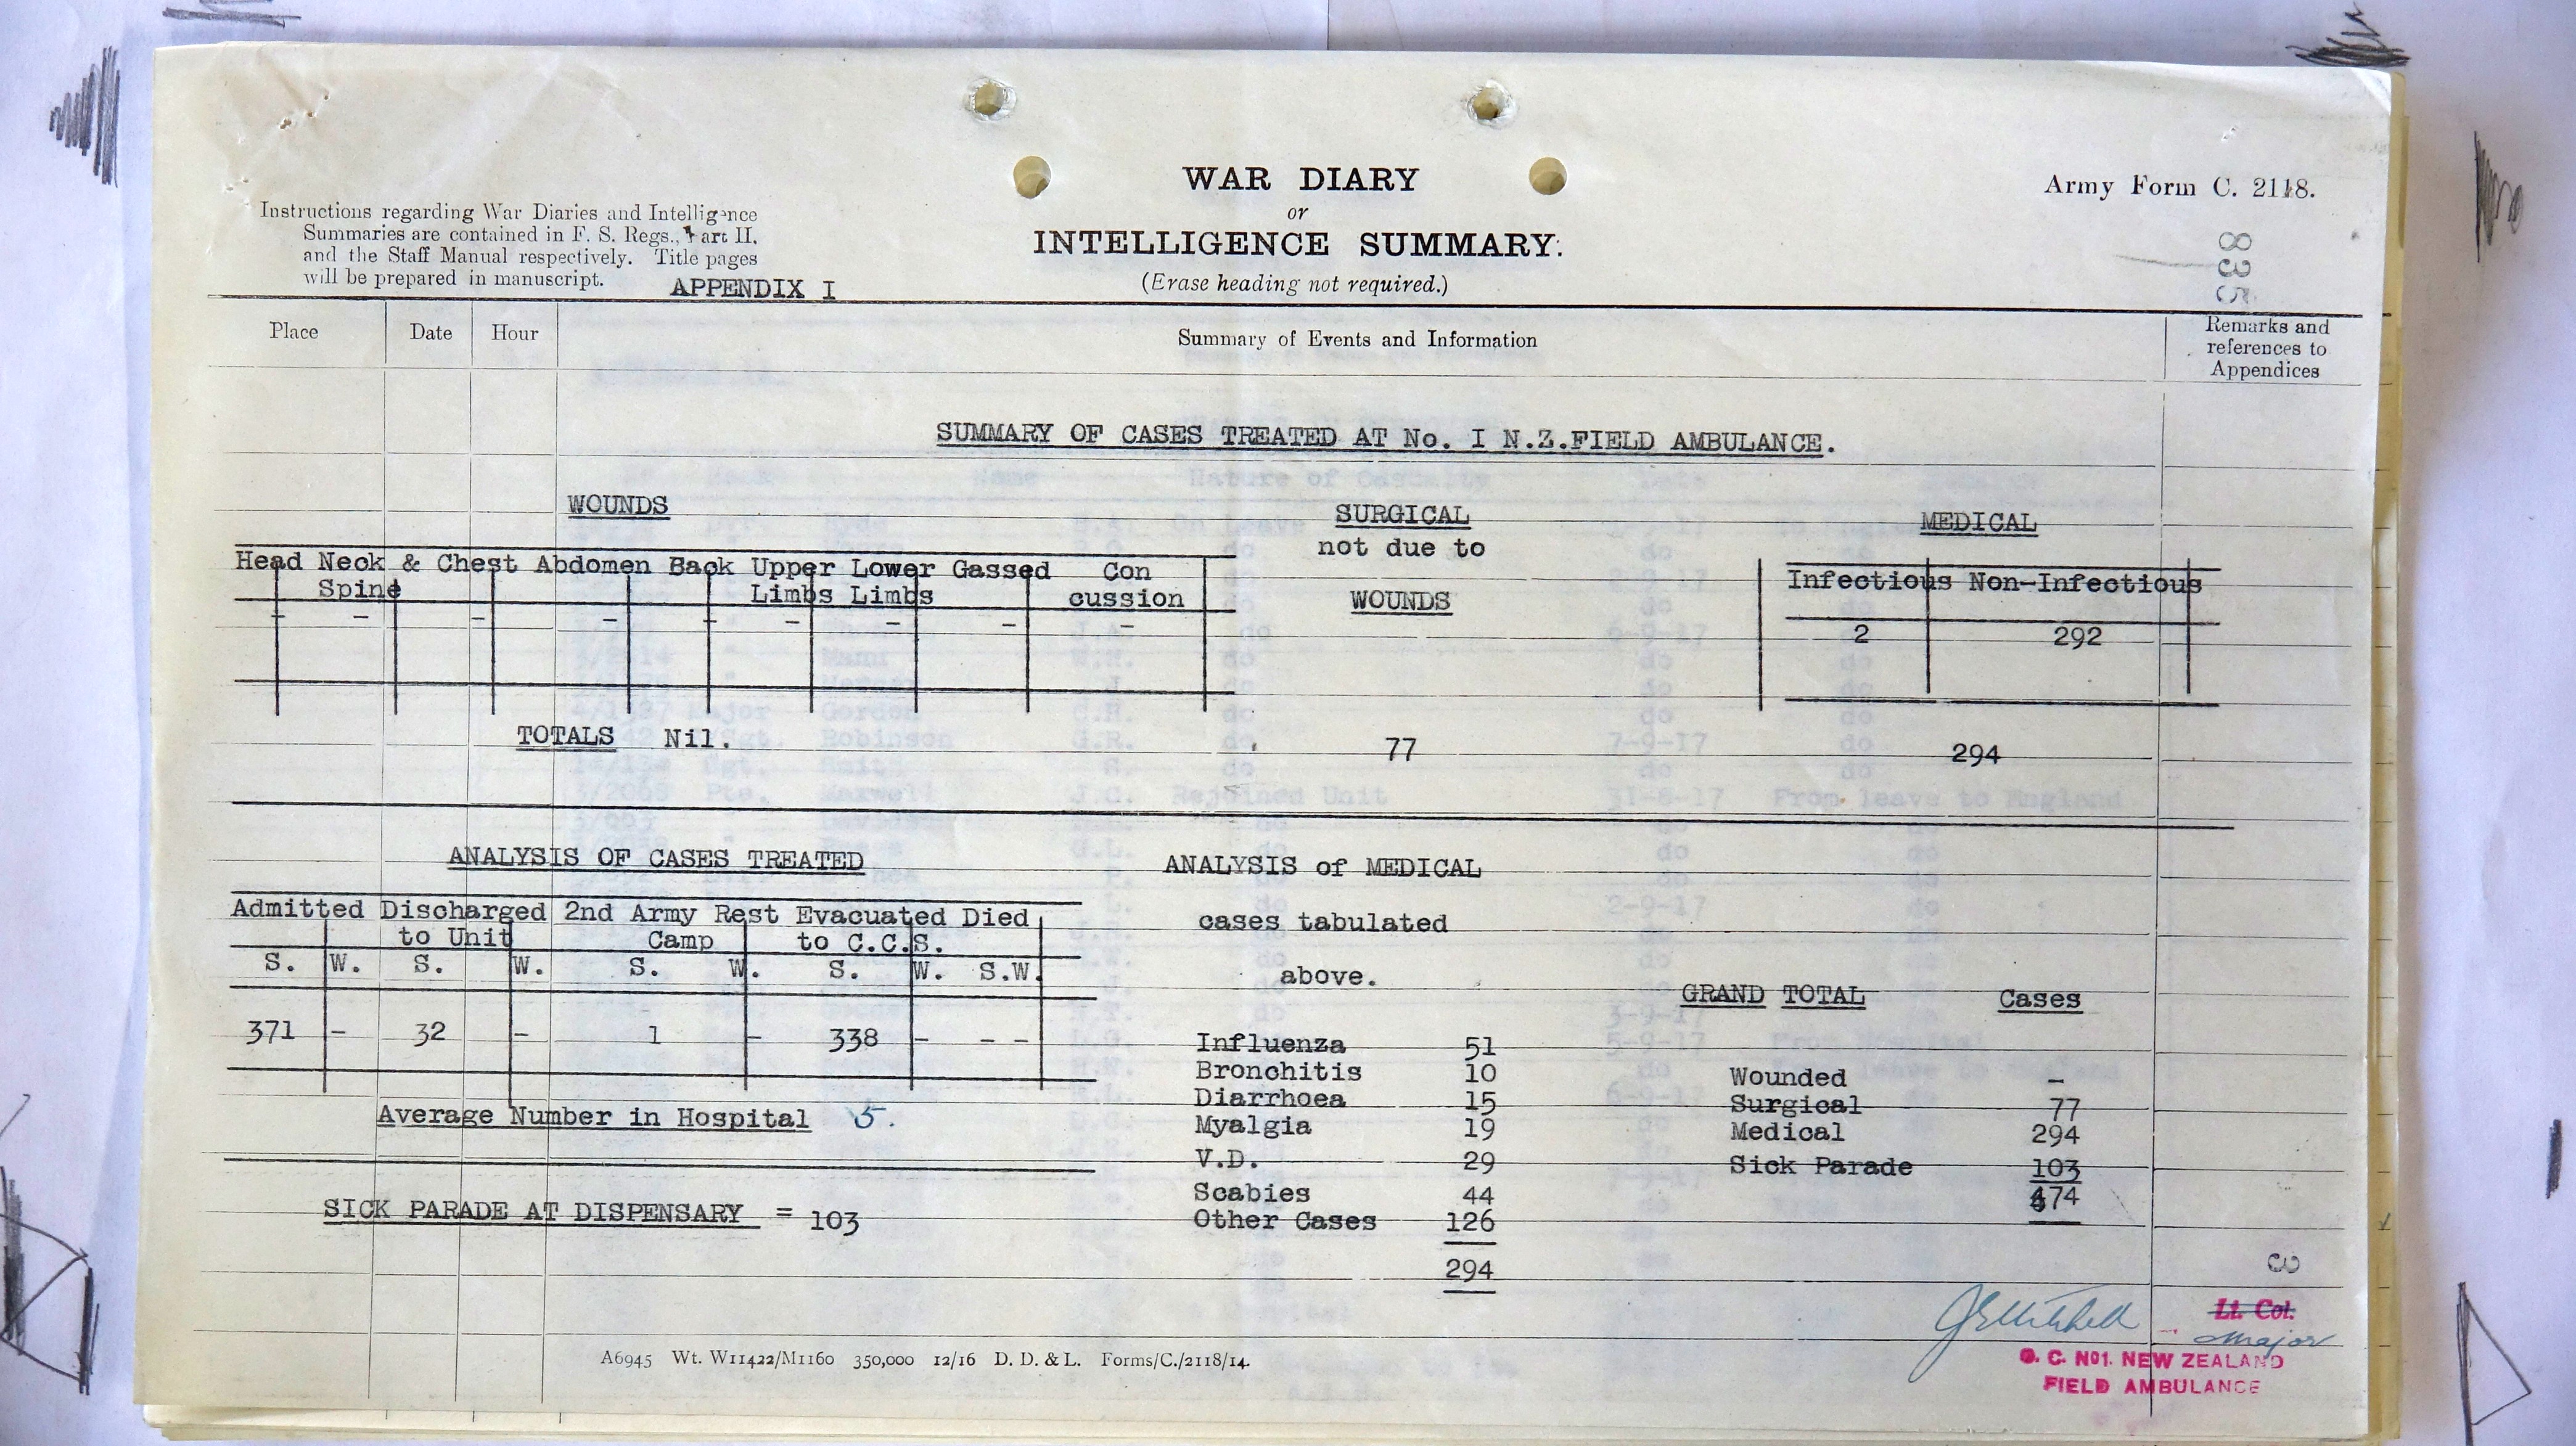 WAR DIARY
or
INTELLIGENCE SUMMARY.
(Erase heading not required.)
Army Form C. 2118.
835
Instructions regarding War Diaries and Intelligence
Summaries are contained in F. S. Regs., Part II.
and the Staff Manual respectively. Title pages
will be prepared in manuscript.
APPENDIX I
Place Date Hour Summary of Events and Information Remarks and
references to
Appendices
SUMMARY OF CASES TREATED AT No. I N.Z.FIELD AMBULANCE.
WOUNDS
Head Neck & Chest Abdomen Back Upper Lower Gassed Con
Spine Limbs Limbs cussion
- - - - - - - - -
TOTALS Nil.
SURGICAL
not due to
WOUNDS
77
MEDICAL
Infectious Non-Infectious
2 292
294
ANALYSIS OF CASES TREATED
Admitted Discharged 2nd Army Rest Evacuated Died
to Unit Camp to C.C.S.
S. W. S. W. S. W. S. W. S.W.
371 - 32 - 1 - 338 - - -
Average Number in Hospital 5.
SICK PARADE AT DISPENSARY = 103
ANALYSIS of MEDICAL
cases tabulated
above.
Influenza 51
Bronchitis 10
Diarrhoea 15
Myalgia 19
V.D. 29
Scabies 44
Other Cases 126
294
GRAND TOTAL Cases
Wounded -
Surgical 77
Medical 294
Sick Parade 103
474
3
Lt. Col.
Major
O. C. No1. NEW ZEALAND
FIELD AMBULANCE
A6945 Wt. W11422/M1160 350,000 12/16 D. D. & L. Forms/C./2118/14.